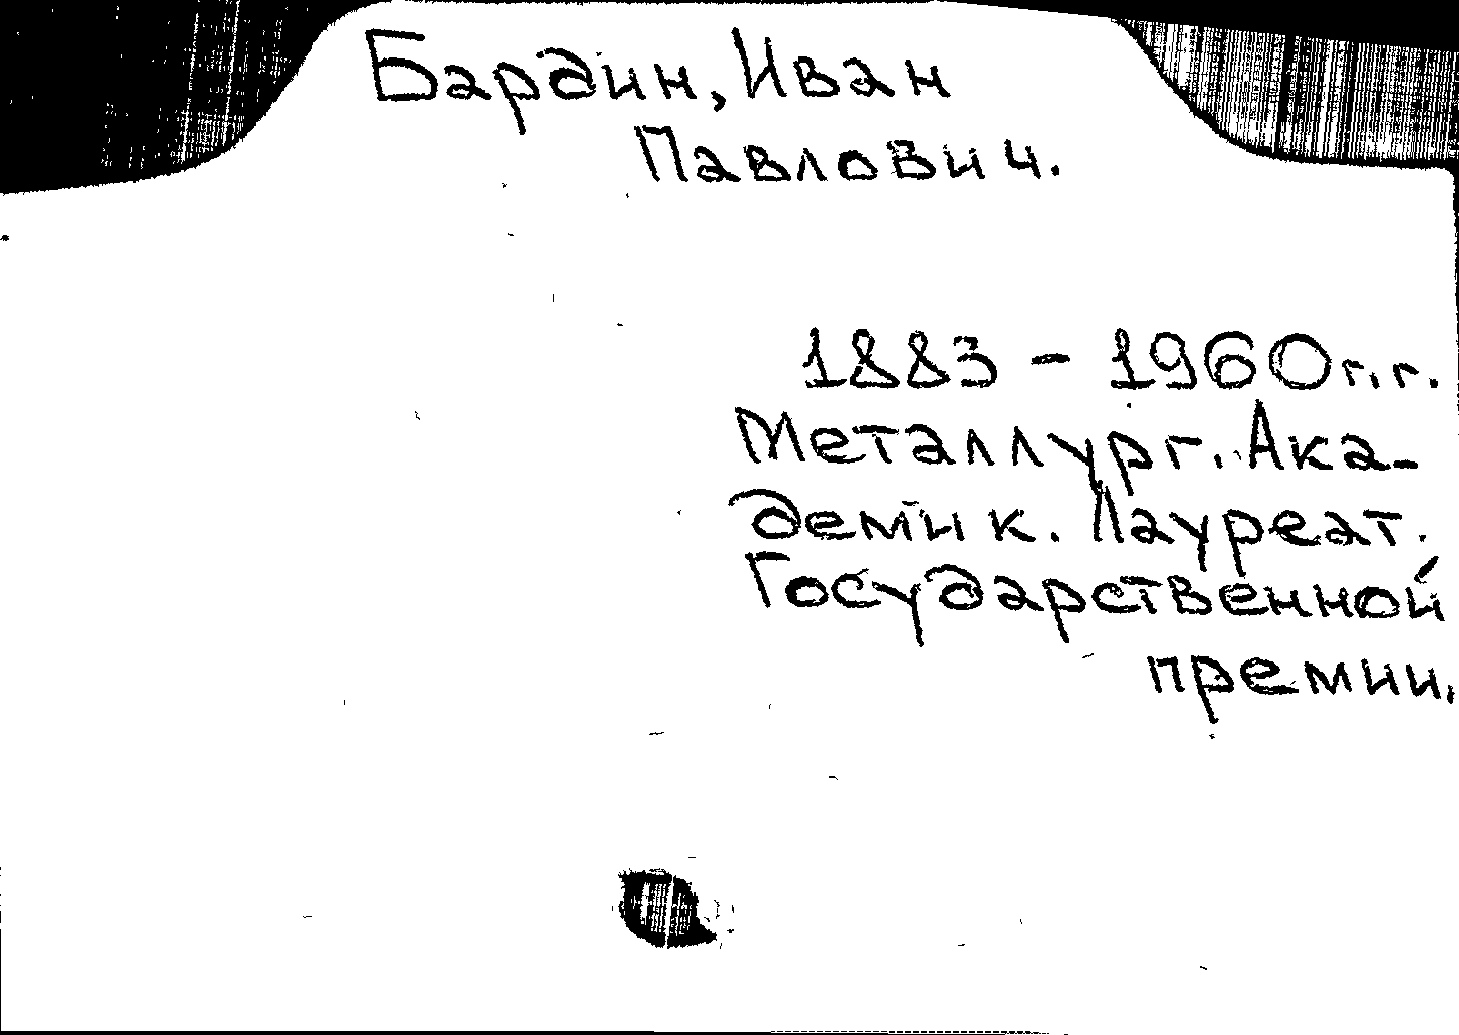 Бардин, Иван
Павлович.
1883 - 1960 г.г.
Металлург. Ака-
демик. Лауреат.
Государственной
премии.